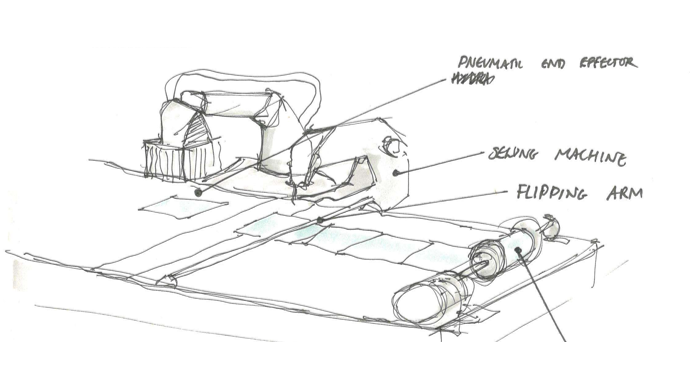 PNEUMATIC END EFFECTOR
SEWING MACHINE
FLIPPING ARM